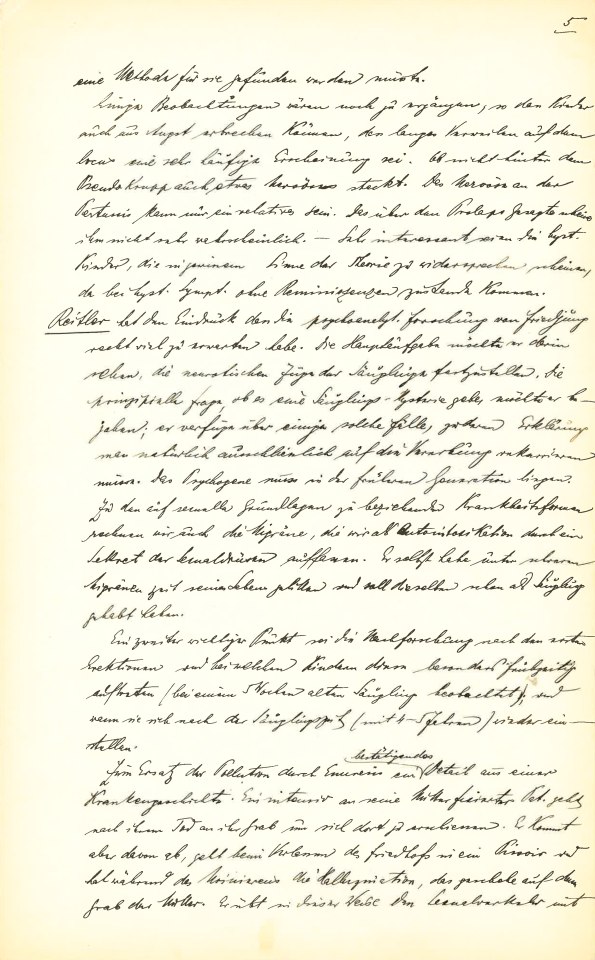 5
eine Methode für sie gefunden werden müsste.
Einige Beobachtungen wären noch zu ergänzen, so dass Kinder
auch aus Angst erbrechen können, dass langes Verweilen auf dem
locus eine sehr häufige Erscheinung sei. Ob nicht hinter dem
Pseudokrupp auch etwas Nervöses steckt. Das Nervöse an der
Pertussis kann nur ein relatives sein. Das über den Prolaps Gesagte scheine
ihm nicht sehr wahrscheinlich. — Sehr interessant seien die hyst.
Kinder, die in gewissem Sinne der Theorie zu widersprechen scheinen,
da bei hyst. Sympt. ohne Reminiszenzen zustande kommen.
Reitler hat den Eindruck dass die psychoanalyt. Forschung von Friedjung
recht viel zu erwarten habe. Die Hauptaufgabe möchte er darin
sehen, die neurotischen Züge der Säuglinge festzustellen. Die
prinzipielle Frage, ob es eine Säuglings-Hysterie gebe, möchte er be-
jahen; er verfüge über einige solche Fälle, zu deren Erklärung
man natürlich ausschliesslich auf die Vererbung rekurrieren
müsse. Das Psychogene muss in der früheren Generation liegen.
Zu den auf sexuelle Grundlagen zu beziehenden Krankheitsformen
rechnen wir auch die Migräne, die wir als Autointoxikation durch ein
Sekret der Sexualdrüsen auffassen. Er selbst habe unter schweren
Migränen zeit seines Lebens gelitten und soll dieselben schon als Säugling
gehabt haben.
Ein zweiter wichtiger Punkt sei die Nachforschung nach den ersten
Erektionen und bei welchen Kindern diese besonders frühzeitig
auftreten (bei einem 5 Wochen alten Säugling beobachtet), und
wann sie sich nach der Säuglingszeit (mit 4-5 Jahren) wieder ein-
stellen.
Zum Ersatz der Pollution durch Enuresis ein bestätigendes Detail aus einer
Krankengeschichte. Ein intensiv an seine Mutter fixierter Pat. geht
nach ihrem Tod an ihr Grab um sich dort zu erschiessen. Er kommt
aber davon ab, geht beim Verlassen des Friedhofs in ein Pissoir und
hat während des Urinierens die Halluzination, das geschehe auf dem
Grab der Mutter. Er übt in dieser Weise den Sexualverkehr mit